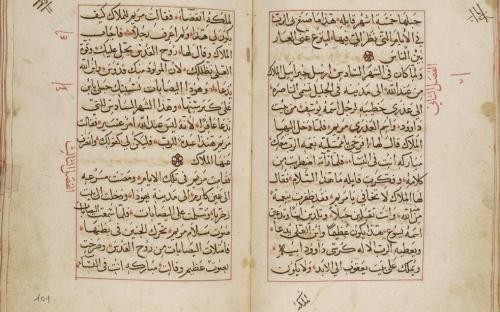 حبلها خمسة اشهر قايله هذا ما صنع بي الرب
في الايام التي نظر الي فيها لينزع عني العار
بين الناس
ولما كان في الشهر السادس ارسل جبرايل الملاك
من عند الله الى مدينة في الجليل تسمى الناصره
الى عذري خطيبة لرجل اسمه يوسف من بيت
داوود واسم العذري مريم فلما دخل اليها
الملاك قال لها افرحي يا ممتليه نعمه الرب معك
مباركه انت في النسا فلما راته اضطربت من
كلامه وفكرت قايله ما هذا السلام فقال
لها الملاك لا تخافي يا مريم فقد ظفرت بنعمة
من الله وانت تقبلين حبلا وتلدين ابنا وتدعين
اسمه يسوع هذا يكون عظيما وابن العلي يدعا
ويعطيه الرب الاله كرسي داوود ابيه
ويملك على بيت يعقوب الى الابد ولا يكون
لملكه
لملكه انقضا فقالت مريم للملاك كيف
يكون لي هذا ولم اعرف رجلا فاجاب
الملاك وقال لها روح القدس تحل عليك وقوة
العلي تظللك لان المولود منك قدوس وابن الله
يدعا وهوذا اليصابات نسيبتك حبلى بابن
على كبر سنها وهذا الشهر السادس للتي
تدعا عاقرا لانه ليس عند الله امر عسير فقالت
مريم هانذا عبدة الرب فليكن لي كقولك وانصرف
عنها الملاك
فقامت مريم في تلك الايام ومضت مسرعه
الى عين كارم الى مدينة يهوذا ودخلت الى بيت
زخريا وسلمت على اليصابات فلما سمعت اليصابات
صوت سلام مريم تحرك الجنين في بطنها
فامتلات اليصابات من روح القدس وصرخت
بصوت عظيم وقالت مباركه انت في النسا
101